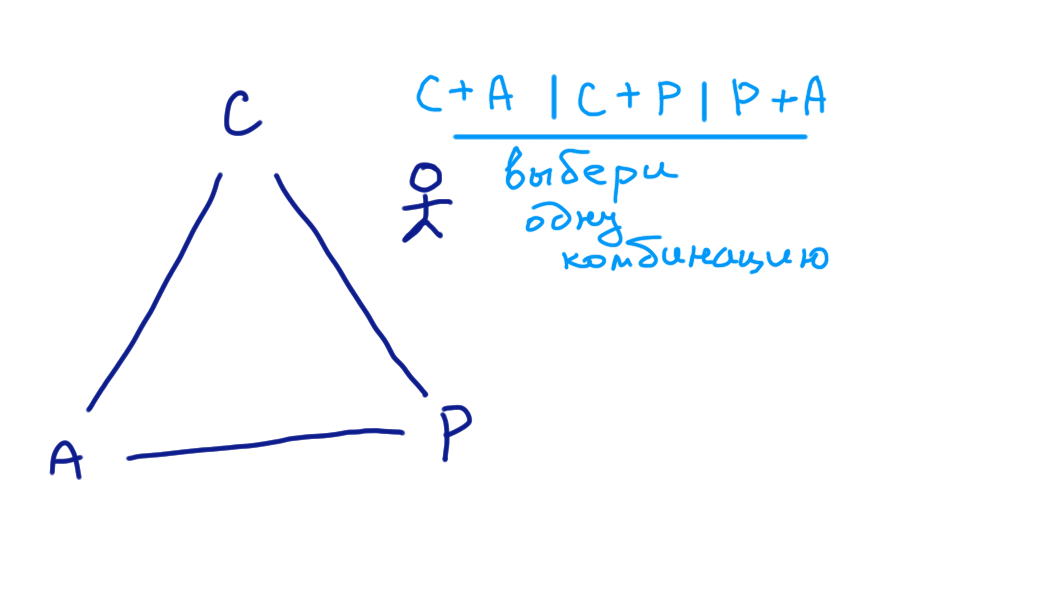 C
C + A | C + P | P + A
выбери
одну
комбинацию
A
P